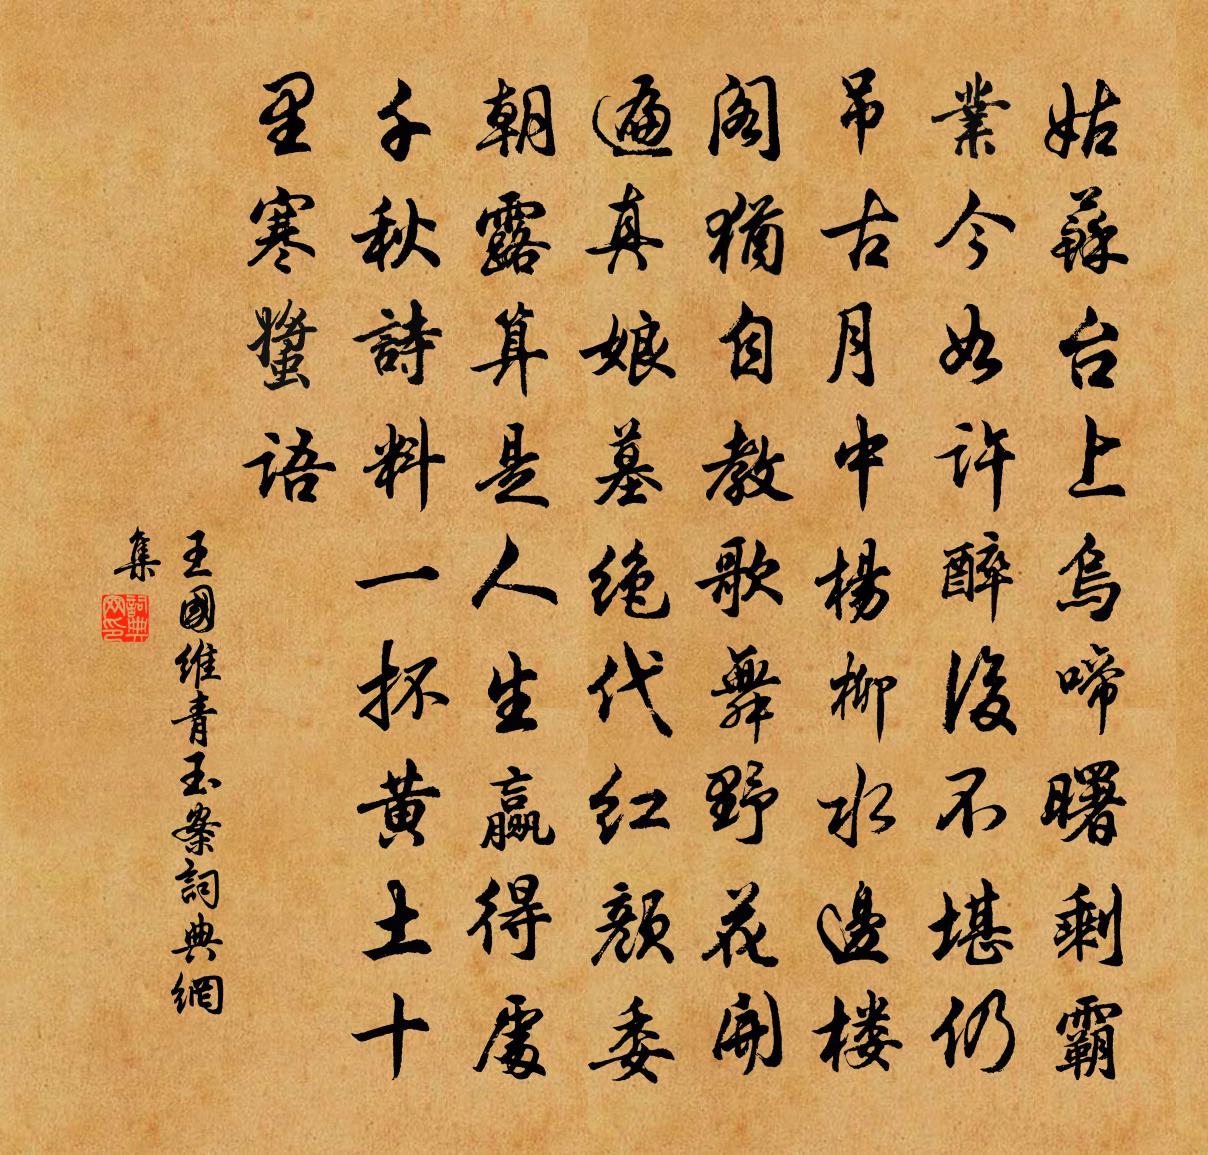 姑蘇台上烏啼曙剩霸
業今如许醉後不堪仍
吊古月中楊柳水邊楼
阁猶自教歌舞野花開
遍真娘墓绝代红颜委
朝露算是人生赢得處
千秋詩料一抔黄土十
里寒螿语
王國維青玉案詞典網
集
詞典
网印